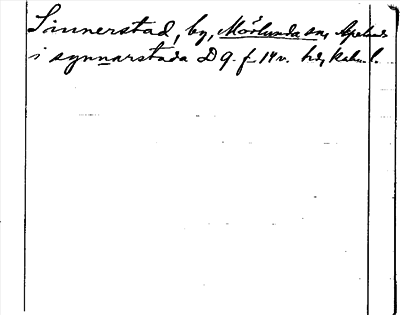 Sinnerstad, by, Mörlunda sn, Aspelands
i synnarstada D 9. f 14 v. hd, Kalm. l.